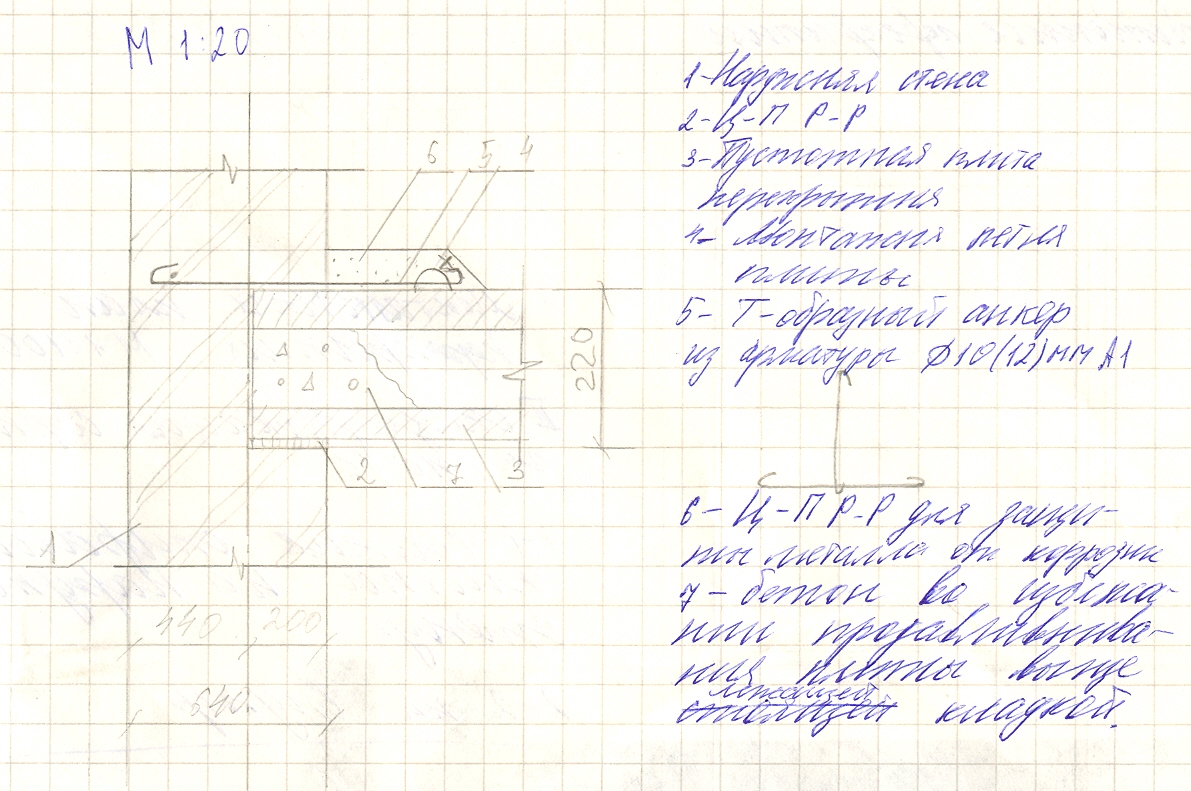 М 1:20
6 5 4
220
2 7 3
1
440 200
640
1-Наружная стена
2-Ц-П Р-Р
3-Пустотная плита
перекрытия
4- Монтажня петля
плиты
5- Т-образный анкер
из арматуры ϕ10(12)мм А1
6- Ц-П Р-Р для защи-
ты металла от коррозии
7- бетон во избежа-
нии продавливыва-
ния плиты выше
лежащей
стоящей кладкой.